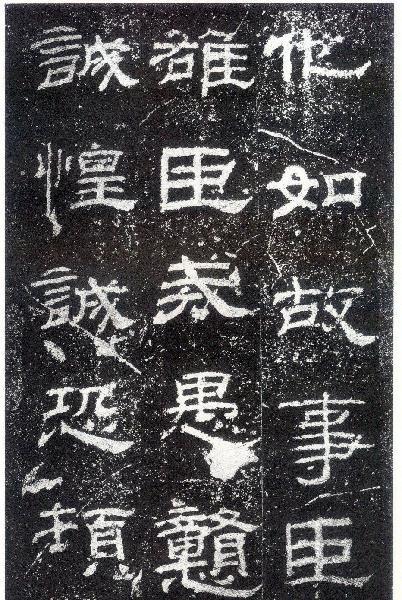 他如故事臣
雄臣戒愚戇
誠惶誠恐頓